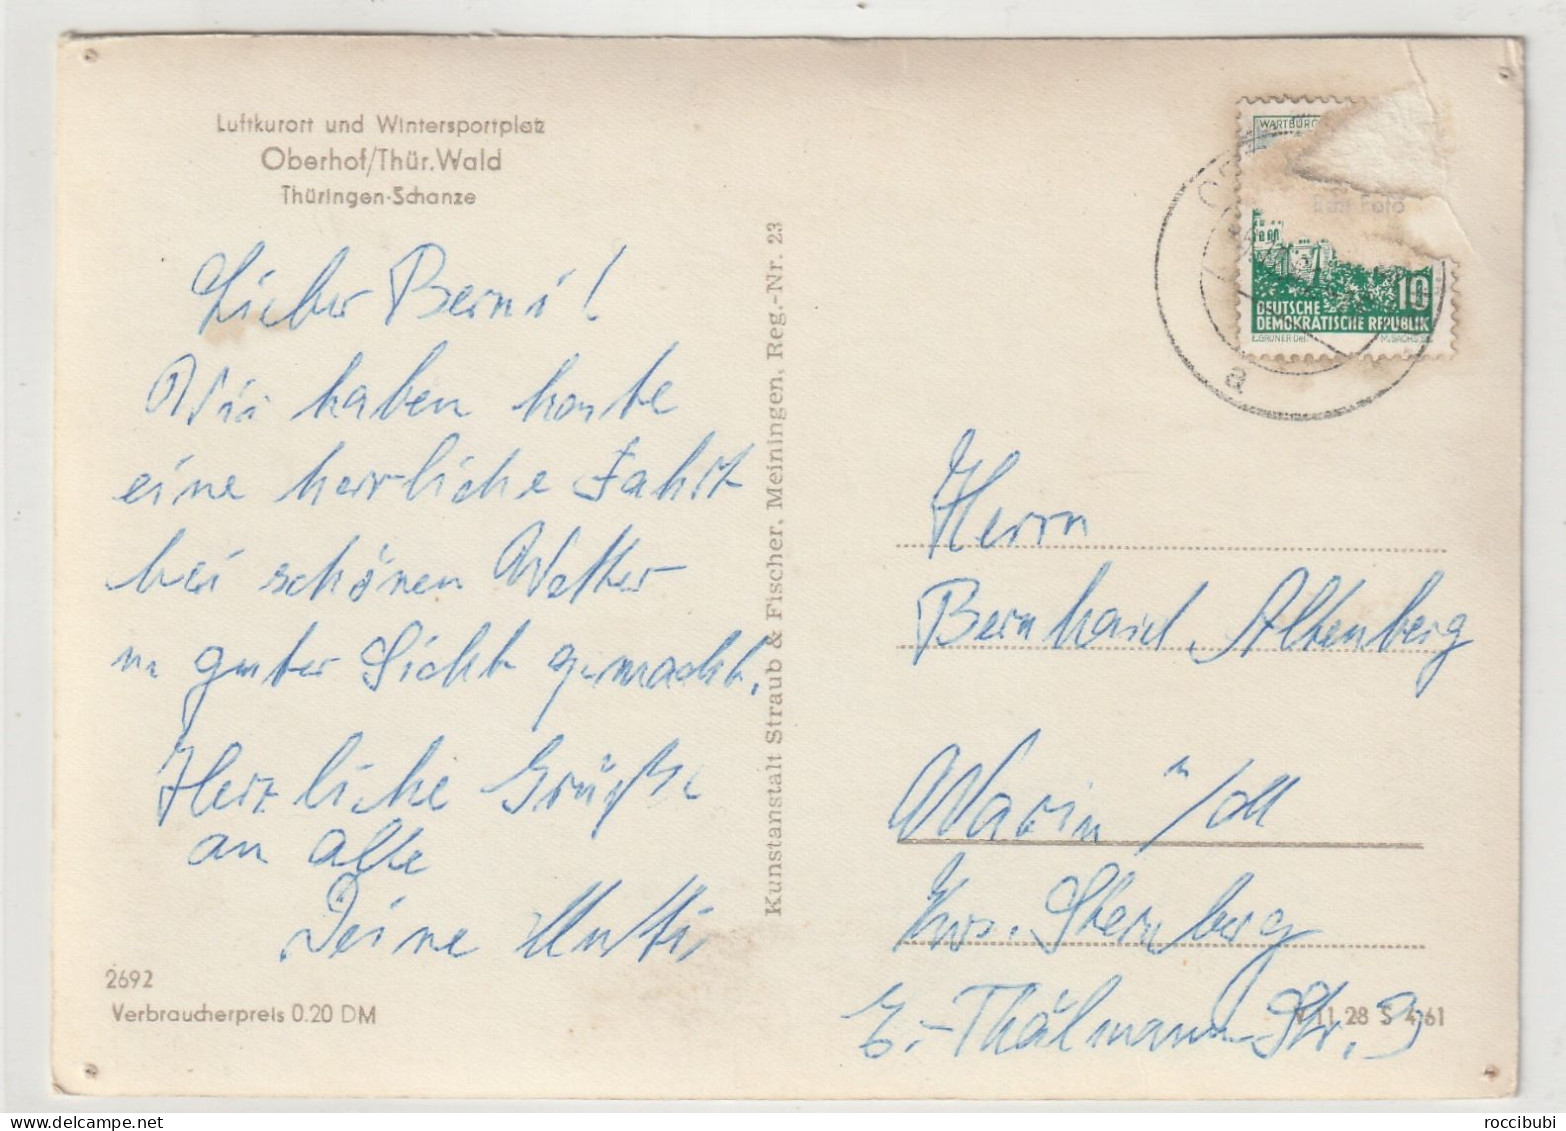 Luftkurort und Wintersportplatz
Oberhof/Thür.Wald
Thüringen-Schanze
Lieber Berni!
Wir haben heute
eine herrliche Fahrt
bei schönen Wetter
u guter Sicht gemacht.
Herzliche Grüße
an alle
Deine Mutti
2692
Verbraucherpreis 0.20 DM
Kunstanstalt Straub & Fischer, Meiningen, Reg.-Nr. 23
WARTBURG
Foto
10
DEUTSCHE
DEMOKRATISCHE REPUBLIK
E.GRUNER DEL.
M.SACHS SC.
a
Herrn
Bernhard Altenberg
Warin i/M
Krs. Sternberg
E.-Thälmann-Str. 9
V 11 28 S 4 61
roccibubi